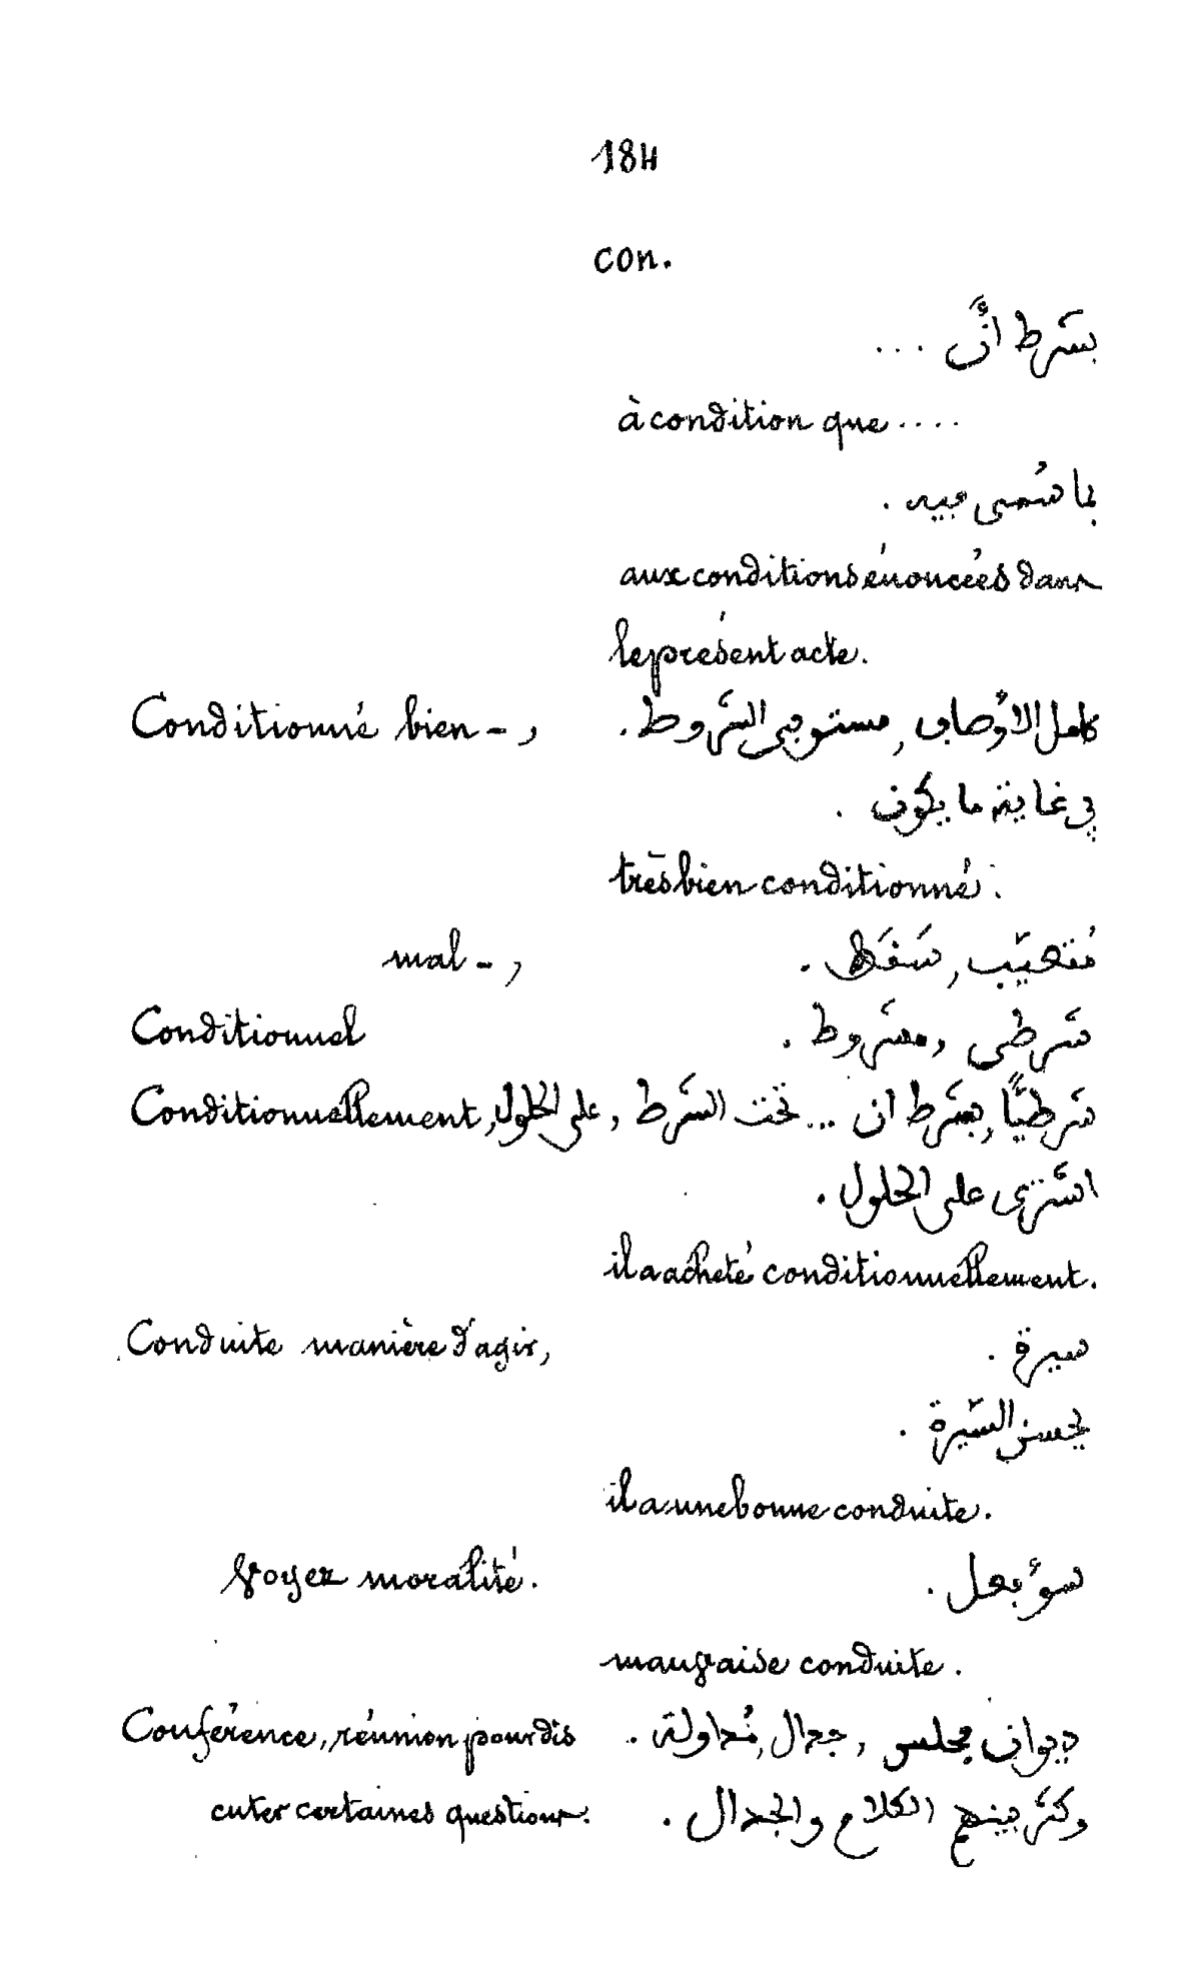 184
con.
بشرط انَّ ...
à condition que ....
بما سُمى فيه .
aux conditions énoncées dans
le présent acte.
Conditionné bien - , كامل الاوُصاف , مستوفى الشروط .
في غاية ما يكون .
très bien conditionné.
mal - , مُتعيّب , سَقَط .
Conditionnel شرطى ومشروط .
Conditionnellement, شرطيًّا , بشرط ان ... تحت الشرط , على الحلول
اشترى على الحلول .
il a acheté conditionnellement.
Conduite manière d'agir, سيرة .
بحسن السّيرة .
il a une bonne conduite.
Voyez moralité. سوء فعل .
mauvaise conduite.
Conférence, réunion pour dis ديوان مجلس , جدال , مُداولة .
cuter certaines questions. وكثر بينهم الكلام والجدال .